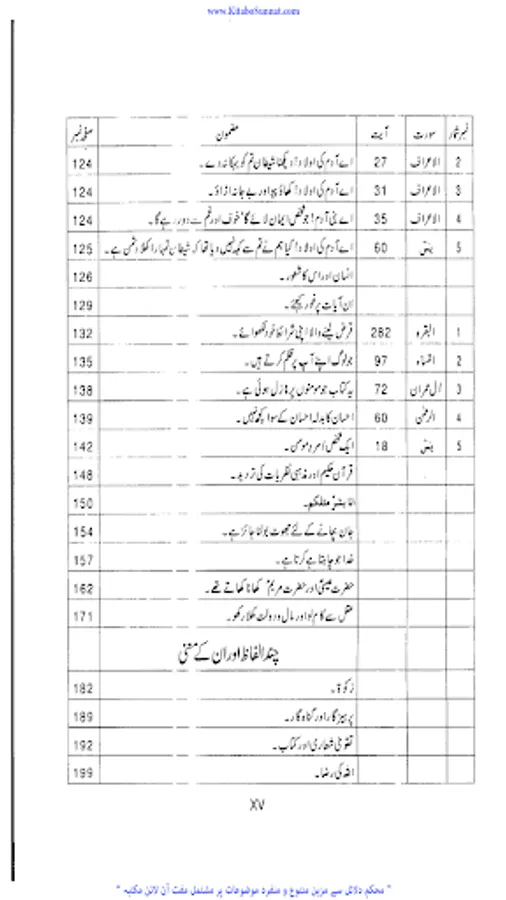 www.KitaboSunnat.com
نمبر شمار سورت آیت مضمون صفحہ نمبر
2 الاعراف 27 اے آدم کی اولاد! دیکھنا شیطان تم کو بہکا نہ دے۔ 124
3 الاعراف 31 اے آدم کی اولاد! کھاؤ پیو اور بے جا نہ اڑاؤ۔ 124
4 الاعراف 35 اے بنی آدم! جو شخص ایمان لائے گا خوف اور غم سے دور رہے گا۔ 124
5 یٰسٓ 60 اے آدم کی اولاد! کیا ہم نے تم سے کہہ نہیں دیا تھا کہ شیطان تمہارا کھلا دشمن ہے۔ 125
انسان اور اس کا شعور۔ 126
ان آیات پر غور کیجئے۔ 129
1 البقرہ 282 قرض لینے والا اپنی شرائط خود لکھوائے۔ 132
2 النساء 97 جو لوگ اپنے آپ پر ظلم کرتے ہیں۔ 135
3 آل عمران 72 یہ کتاب جو مومنوں پر نازل ہوئی ہے۔ 138
4 الرحمٰن 60 احسان کا بدلہ احسان کے سوا کچھ نہیں۔ 139
5 یٰسٓ 18 ایک شخص مرد مومن۔ 142
قرآن حکیم اور مذہبی نظریات کی تردید۔ 148
انا بشرٌ مثلکم۔ 150
جان بچانے کے لئے جھوٹ بولنا جائز ہے۔ 154
خدا جو چاہتا ہے کرتا ہے۔ 157
حضرت عیسیٰؑ اور حضرت مریمؑ کھانا کھاتے تھے۔ 162
عقل سے کام لو اور مال و دولت کھلا رکھو۔ 171
چند الفاظ اور ان کے معنی
زکوٰۃ۔ 182
پرہیزگار اور گناہ گار۔ 189
تقویٰ شعاری اور کتاب۔ 192
اللہ کی رضا۔ 199
XV
" محکم دلائل سے مزین متنوع و منفرد موضوعات پر مشتمل مفت آن لائن مکتبہ "